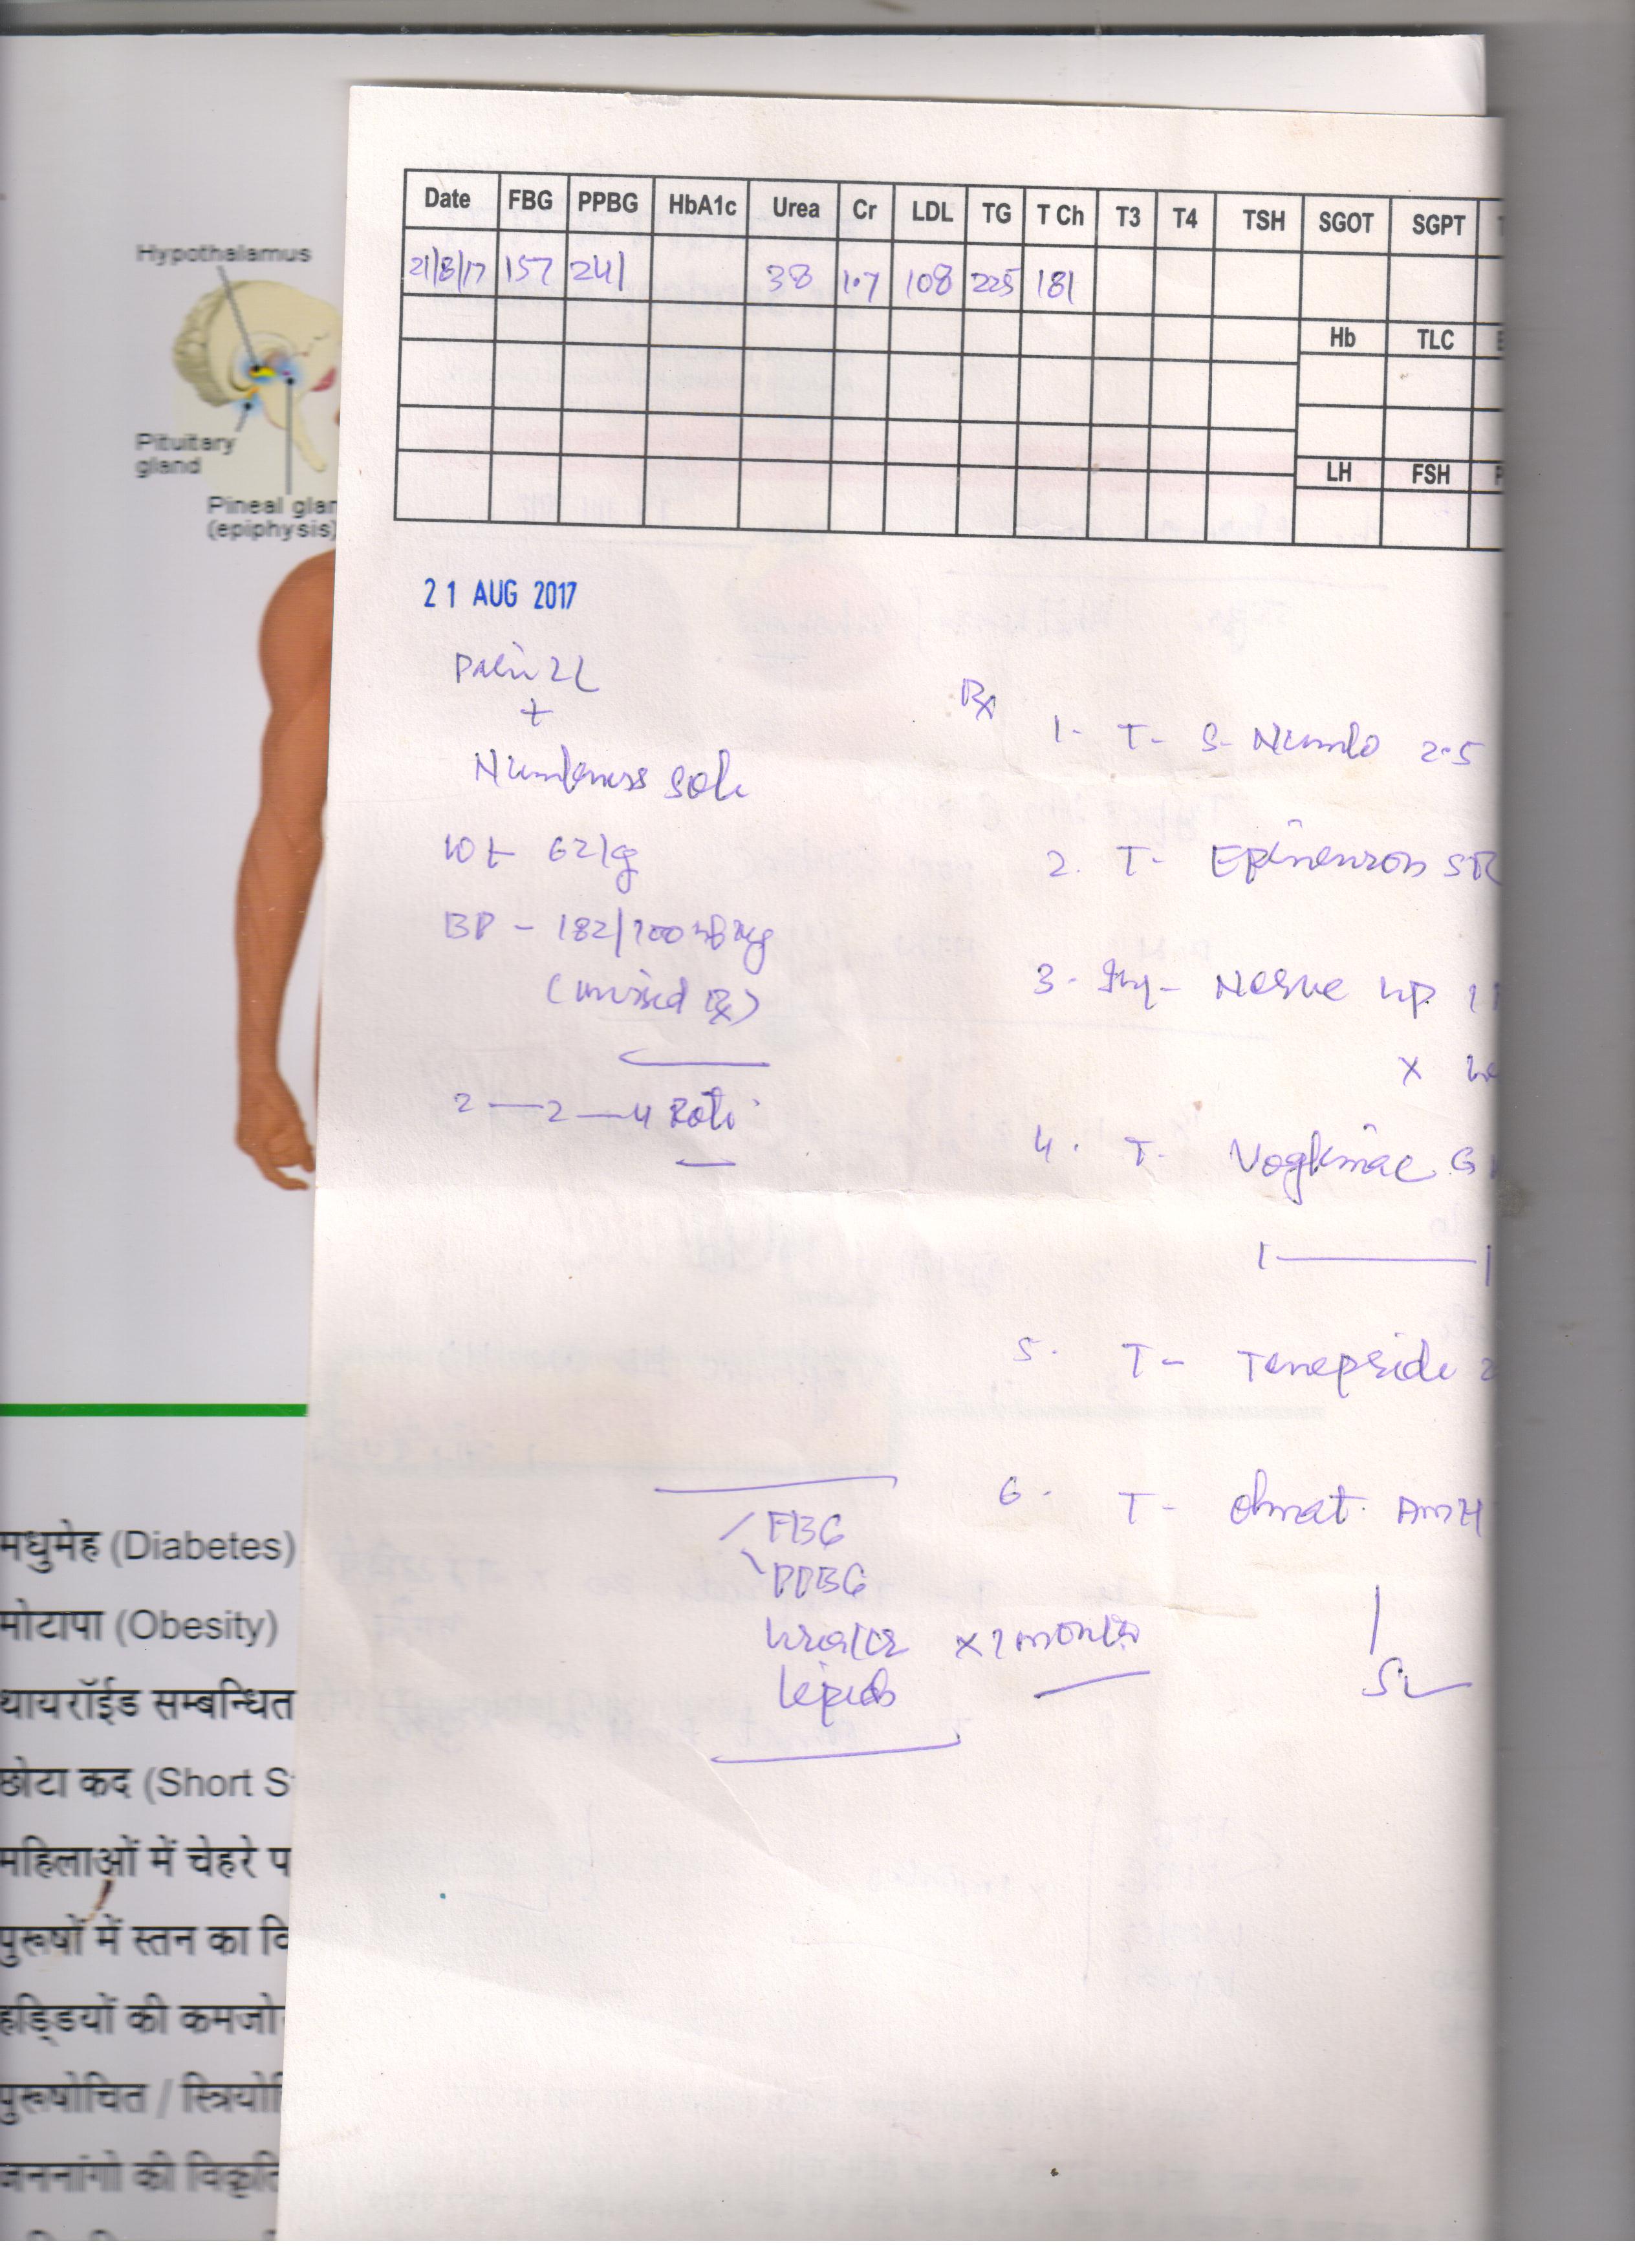 Hypothalamus
Pituitary
gland
Pineal glan
(epiphysis)
Date FBG PPBG HbA1c Urea Cr LDL TG T Ch T3 T4 TSH SGOT SGPT
21/8/17 157 241 38 1.7 108 225 181
Hb TLC
LH FSH
21 AUG 2017
+
Numbness sole
Wt 62kg
BP - 182/100
(missed Rx)
2 — 2 — 4 Roti
Rx
1- T- S- Numlo 2.5
2. T- Epineuron SR
3- Inj- Nerve up 1
X
4. T- Voglimac G
1 — 1
5. T- Tenepride 2
6. T- Olmat AMH
FBG
PPBG
Urea/Cr X 1 month
Lipids
मधुमेह (Diabetes)
मोटापा (Obesity)
थायरॉईड सम्बन्धित
छोटा कद (Short S
महिलाओं में चेहरे प
पुरूषों में स्तन का वि
हड्डियों की कमजो
पुरूषोचित / स्त्रियो
जननांगो की विकृति